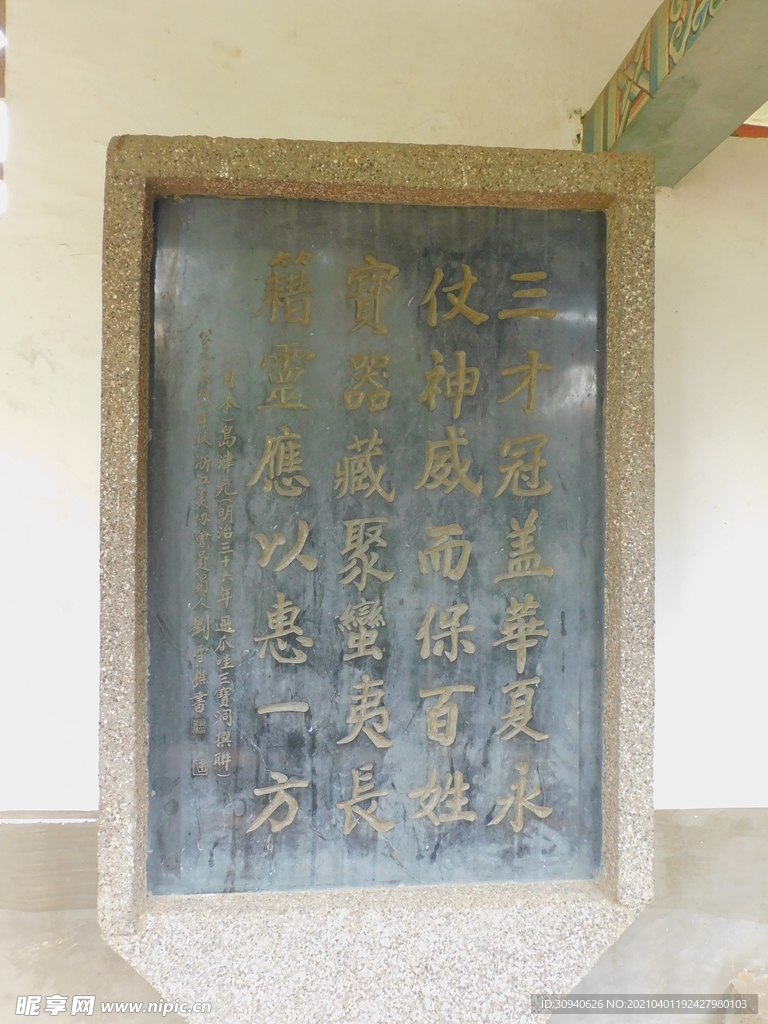 三才冠盖華夏永
仗神威而保百姓
寳器藏聚蠻夷長
籍靈應以惠一方
日本(島津元(明治三十六年週爪哇三寶洞撰聯)
人劉雪樵書
昵享网 www.nipic.cn
ID:30940626 NO:20210401192427980103